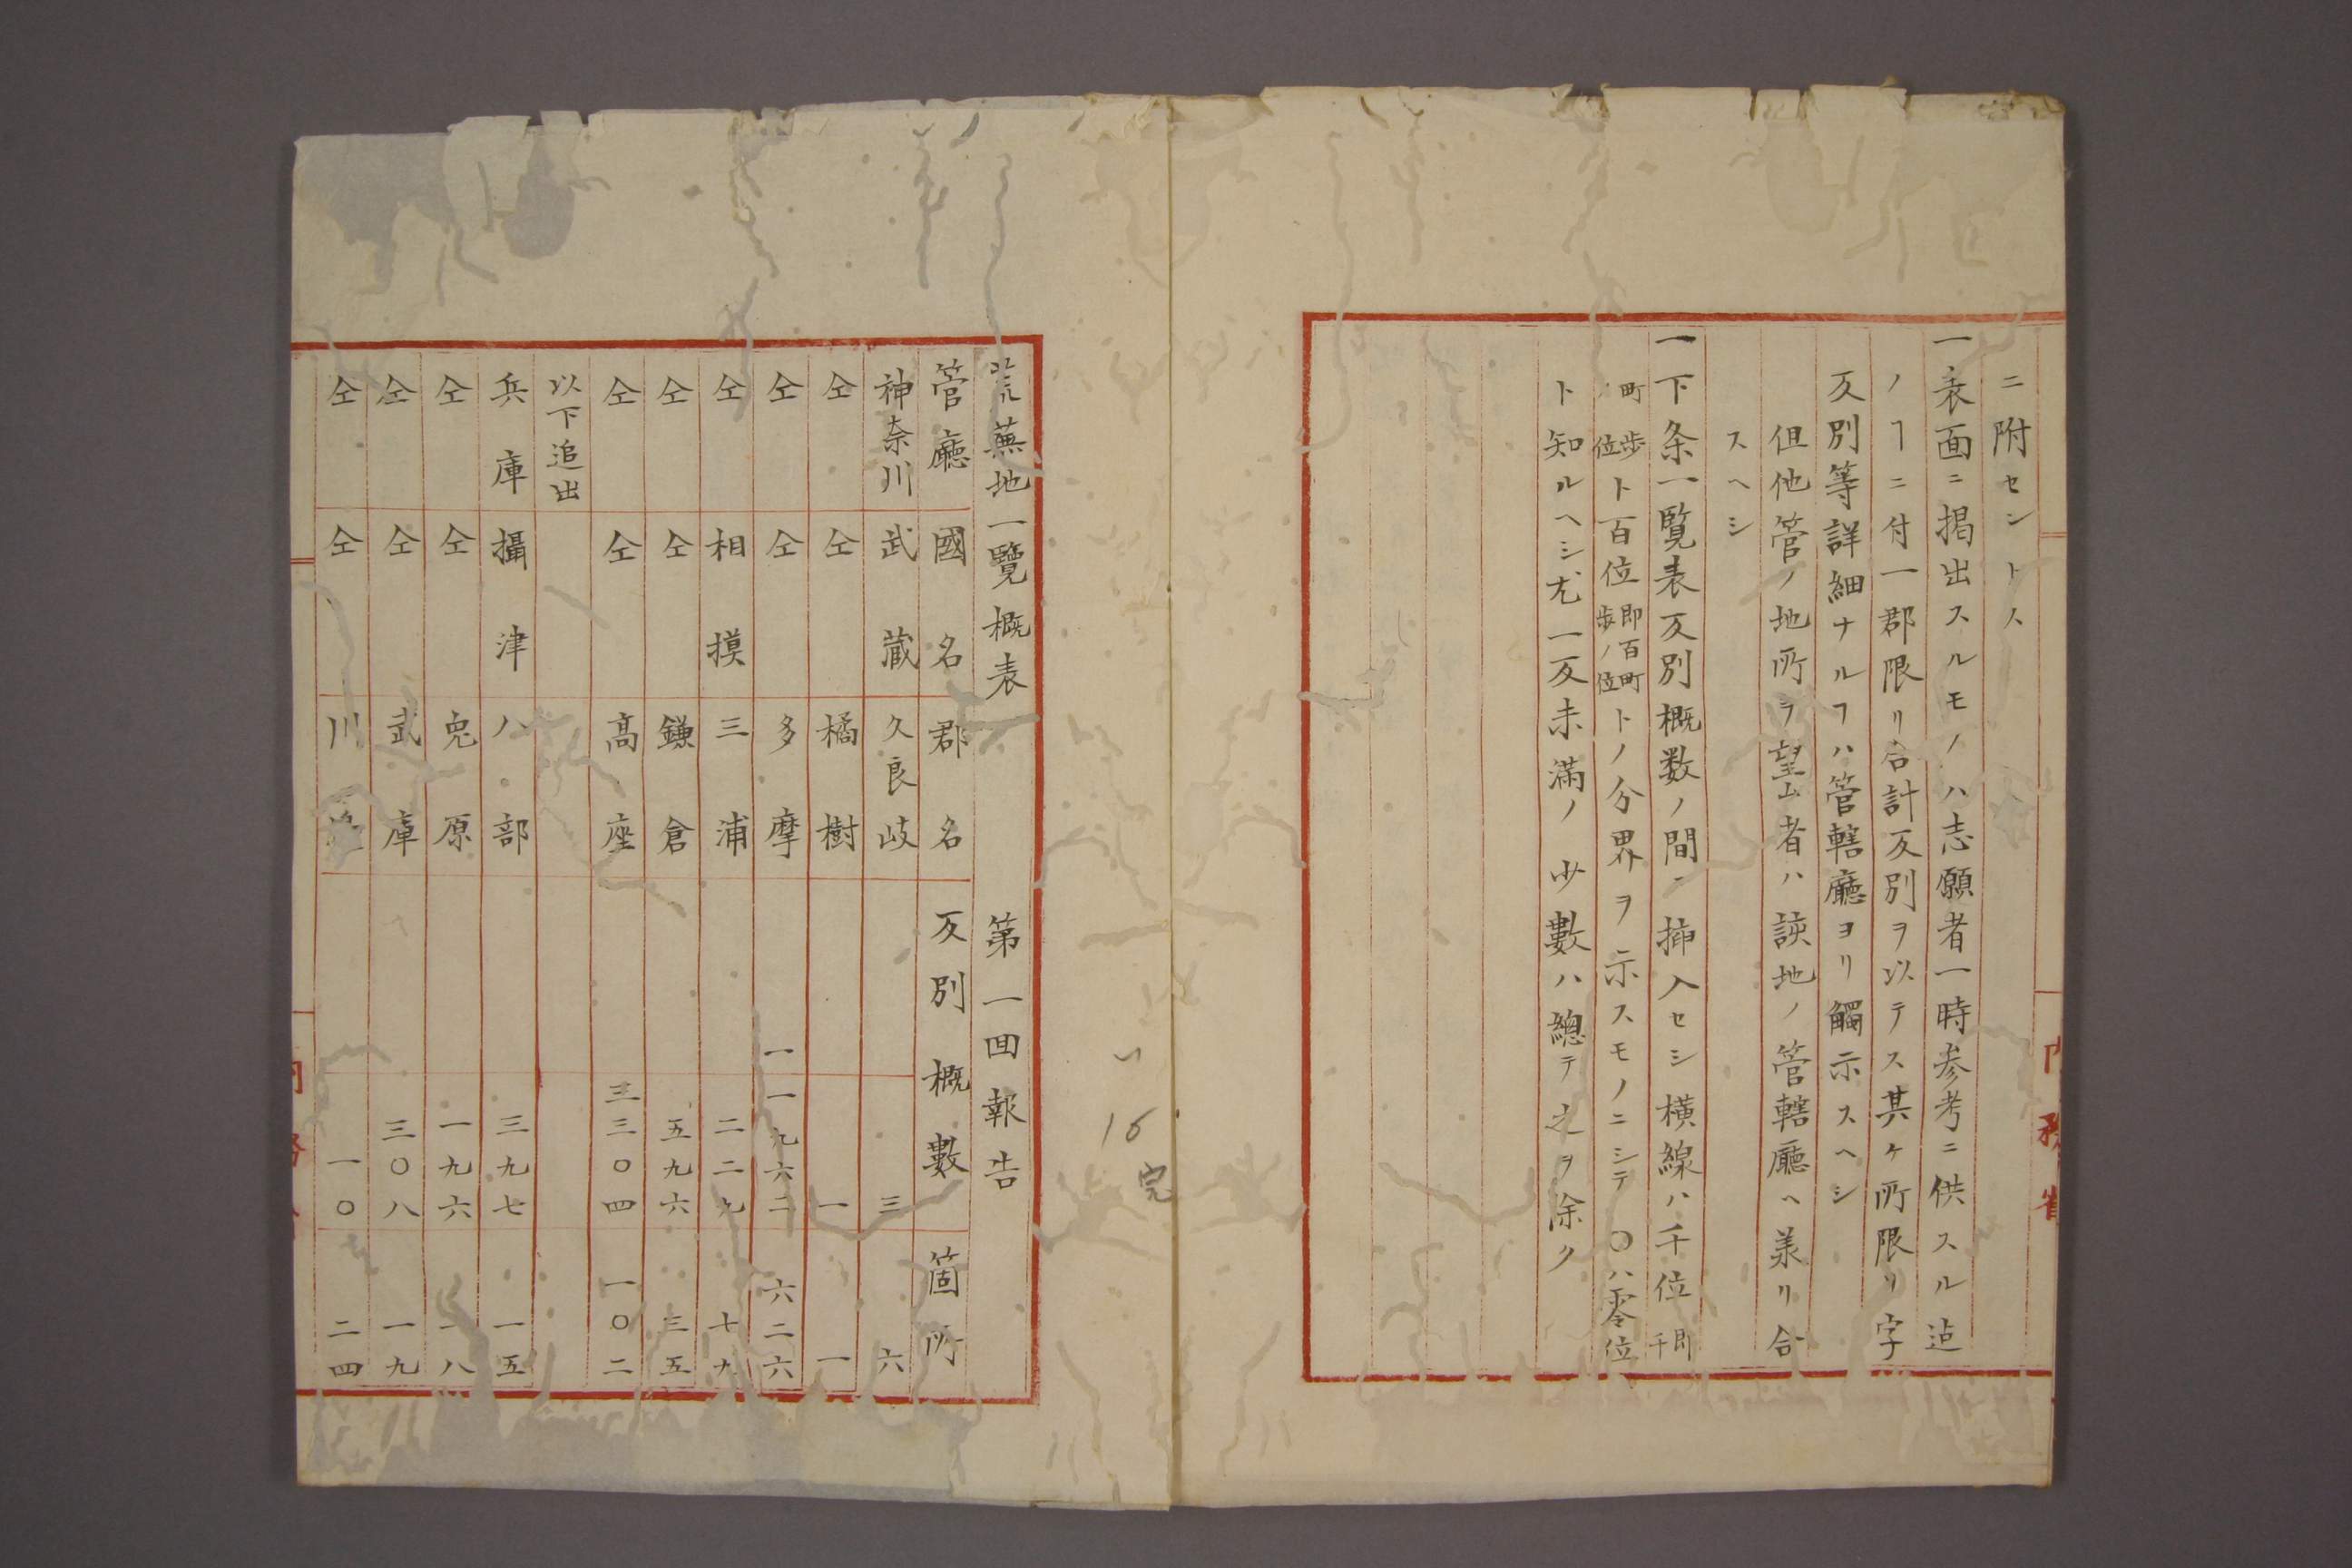 ニ附セントス
一表面ニ掲出スルモノハ志願者一時参考ニ供スル迠
ノヿニ付一郡限リ合計反別ヲ以テス其ケ所限リ字
反別等詳細ナルヿハ管轄廳ヨリ觸示スヘシ
但他管ノ地所ヲ望ム者ハ該地ノ管轄廳ヘ美リ合
スヘシ
一下条一覧表反別概数ノ間ニ挿入セシ横線ハ千位即千
町歩ノ位ト百位即百町歩ノ位トノ分界ヲ示スモノニシテ〇ハ零位
ト知ルヘシ尤一反未滿ノ少數ハ總テ之ヲ除ク
内務省
16
完
荒蕪地一覽概表 第一回報告
管廳 國名 郡名 反別概數 箇所
神奈川 武蔵 久良岐 三 六
仝 仝 橘樹 一 一
仝 仝 多摩 一一九六二 六二六
仝 相摸 三浦 二二九 十九
仝 仝 鎌倉 五九六 三五
仝 仝 高座 三三〇四 一〇二
以下追出
兵庫 攝津 八部 三九七 一五
仝 仝 兎原 一九六 一八
仝 仝 武庫 三〇八 一九
仝 仝 川邊 一〇 二四